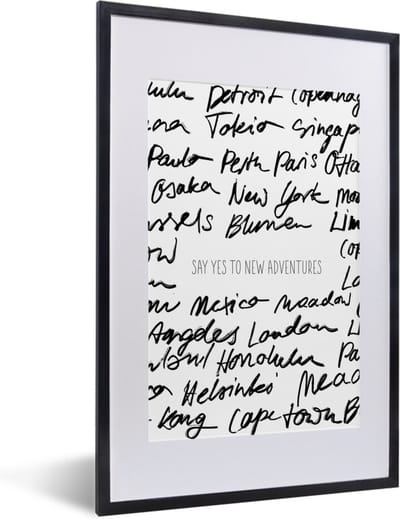 lulu Detroit Copenhag
Tokio Singap
Paulo Perth Paris Otta
Osaka New York
ssels Blumen Lim
SAY YES TO NEW ADVENTURES
Mexico Meadow L
Angeles London
Honolulu Pa
Helsinki Mead
Kong Cape Town B